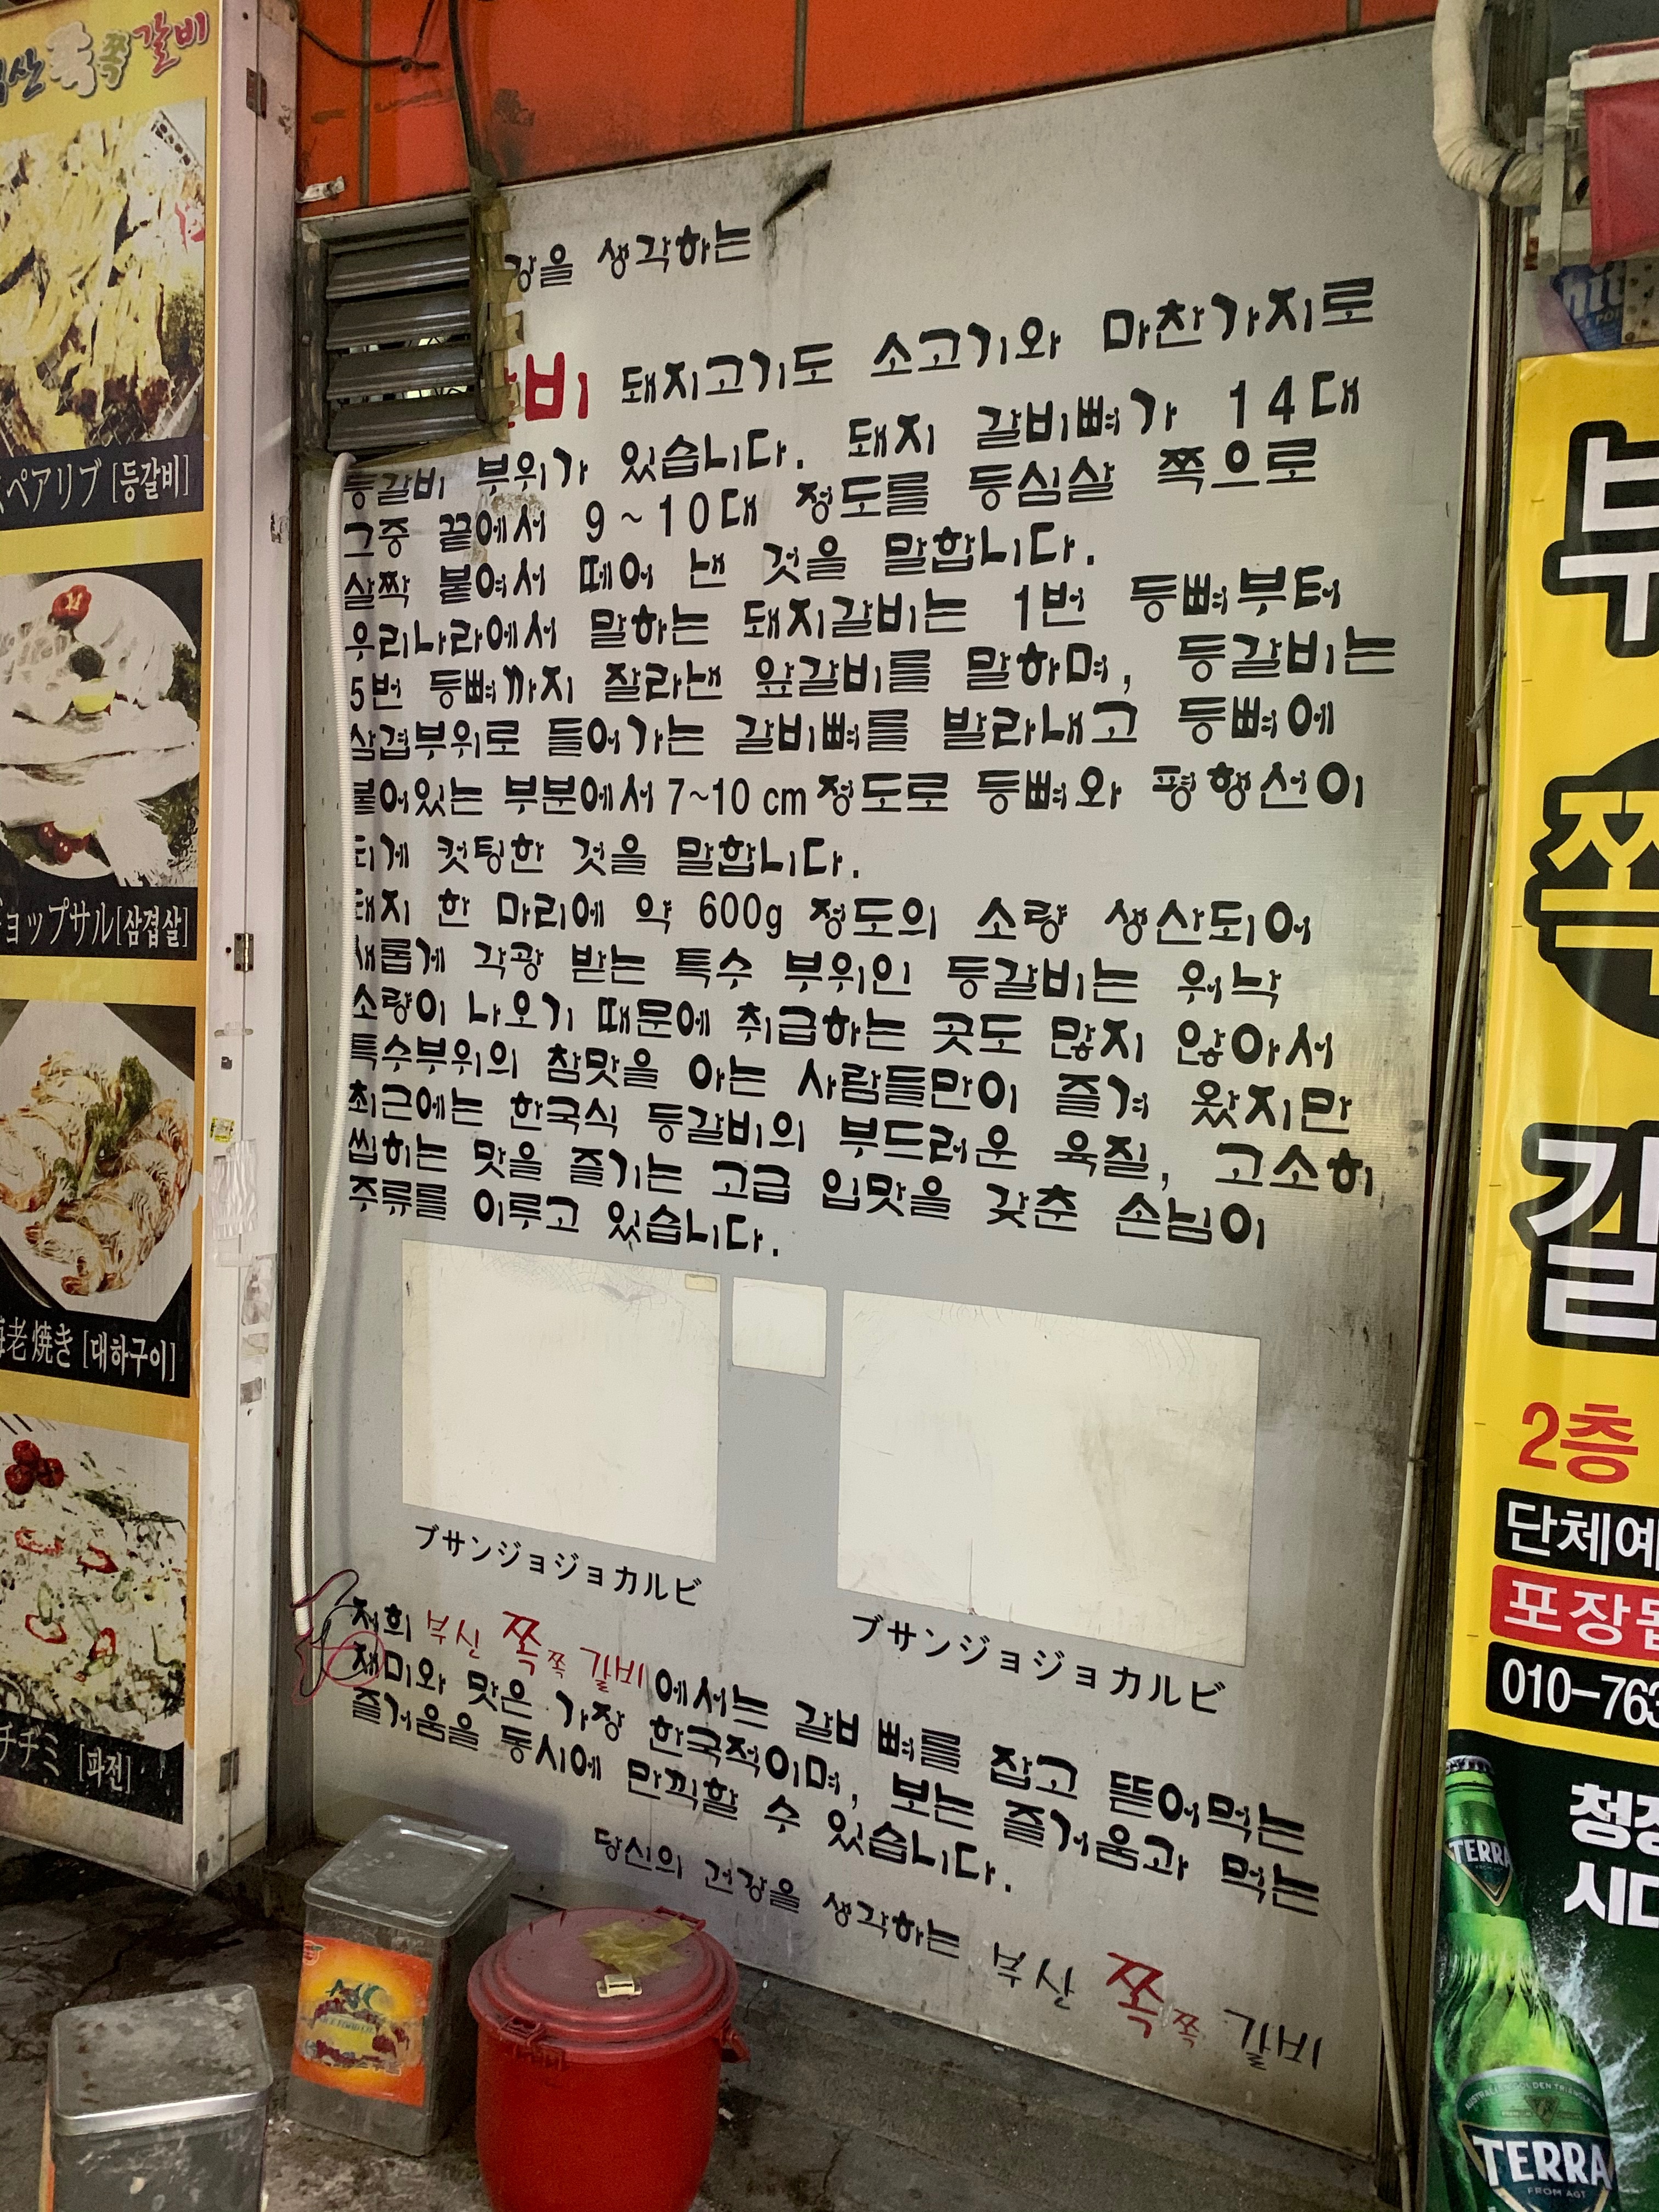 산쪽쪽갈비
스페アリブ [등갈비]
ョップサル[삼겹살]
海老焼き [대하구이]
チヂミ [파전]
강을 생각하는
비 돼지고기도 소고기와 마찬가지로
등갈비 부위가 있습니다. 돼지 갈비뼈가 14대
그중 끝에서 9~10대 정도를 등심살 쪽으로
살짝 붙여서 떼어 낸 것을 말합니다.
우리나라에서 말하는 돼지갈비는 1번 등뼈부터
5번 등뼈까지 잘라낸 앞갈비를 말하며, 등갈비는
삼겹부위로 들어가는 갈비뼈를 발라내고 등뼈에
붙어있는 부분에서 7~10 cm 정도로 등뼈와 평행선이
되게 컷팅한 것을 말합니다.
돼지 한 마리에 약 600g 정도의 소량 생산되어
새롭게 각광 받는 특수 부위인 등갈비는 워낙
소량이 나오기 때문에 취급하는 곳도 많지 않아서
특수부위의 참맛을 아는 사람들만이 즐겨 왔지만
최근에는 한국식 등갈비의 부드러운 육질, 고소히
씹히는 맛을 즐기는 고급 입맛을 갖춘 손님이
주류를 이루고 있습니다.
ブサンジョジョカルビ
ブサンジョジョカルビ
저희 부산 쪽쪽 갈비에서는 갈비 뼈를 잡고 뜯어먹는
재미와 맛은 가장 한국적이며, 보는 즐거움과 먹는
즐거움을 동시에 만끽할 수 있습니다.
당신의 건강을 생각하는 부산 쪽쪽 갈비
부
쪽
갈
2층
단체예
포장됩
010-763
청정
시대
TERRA
AUSTRALIA'S GOLDEN TRIANGLE
TERRA
FROM AGT